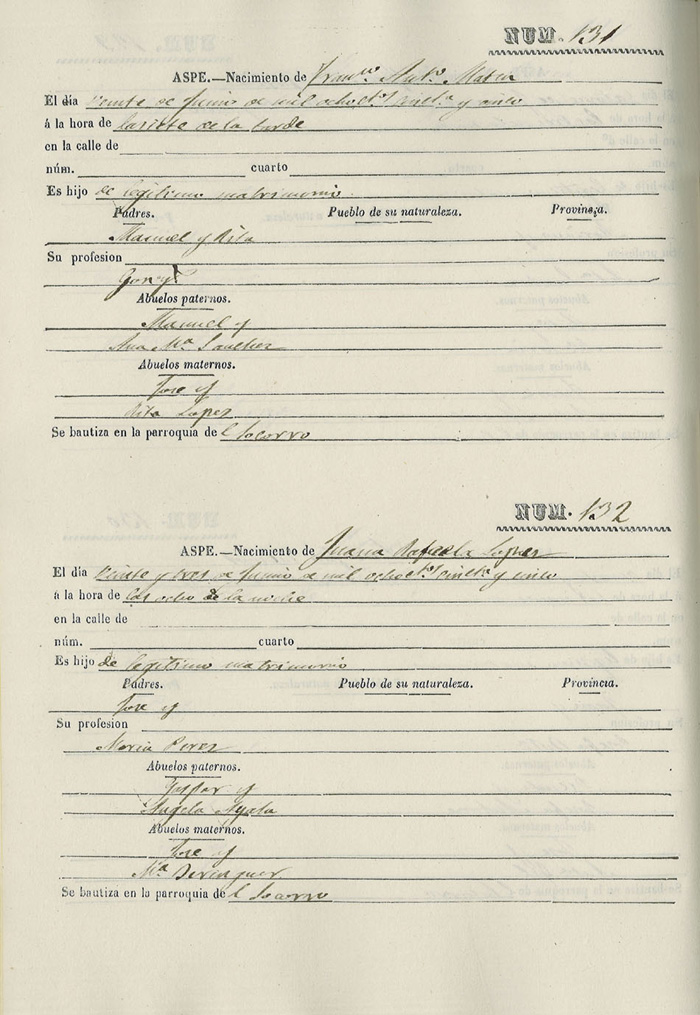 NUM. 131
ASPE.—Nacimiento de Franco Anto Mateu
El día veinte de Junio de mil ochoctos cincta y cinco
á la hora de las siete de la tarde
en la calle de
núm. cuarto
Es hijo de legitimo matrimonio
Padres. Pueblo de su naturaleza. Provincia.
Manuel y Rita
Su profesion
Abuelos paternos.
Manuel y
Ana Ma Sanchez
Abuelos maternos.
Jose y
Rita Lopez
Se bautiza en la parroquia de l Socorro
NUM. 132
ASPE.—Nacimiento de Juana Rafaela Lopez
El día veinte y tres de Junio de mil ochoctos cincta y cinco
á la hora de las ocho de la noche
en la calle de
núm. cuarto
Es hijo de legitimo matrimonio
Padres. Pueblo de su naturaleza. Provincia.
Jose y
Su profesion
Maria Perez
Abuelos paternos.
Gaspar y
Angela Ayala
Abuelos maternos.
Jose y
Ma Berenguer
Se bautiza en la parroquia de l Socorro